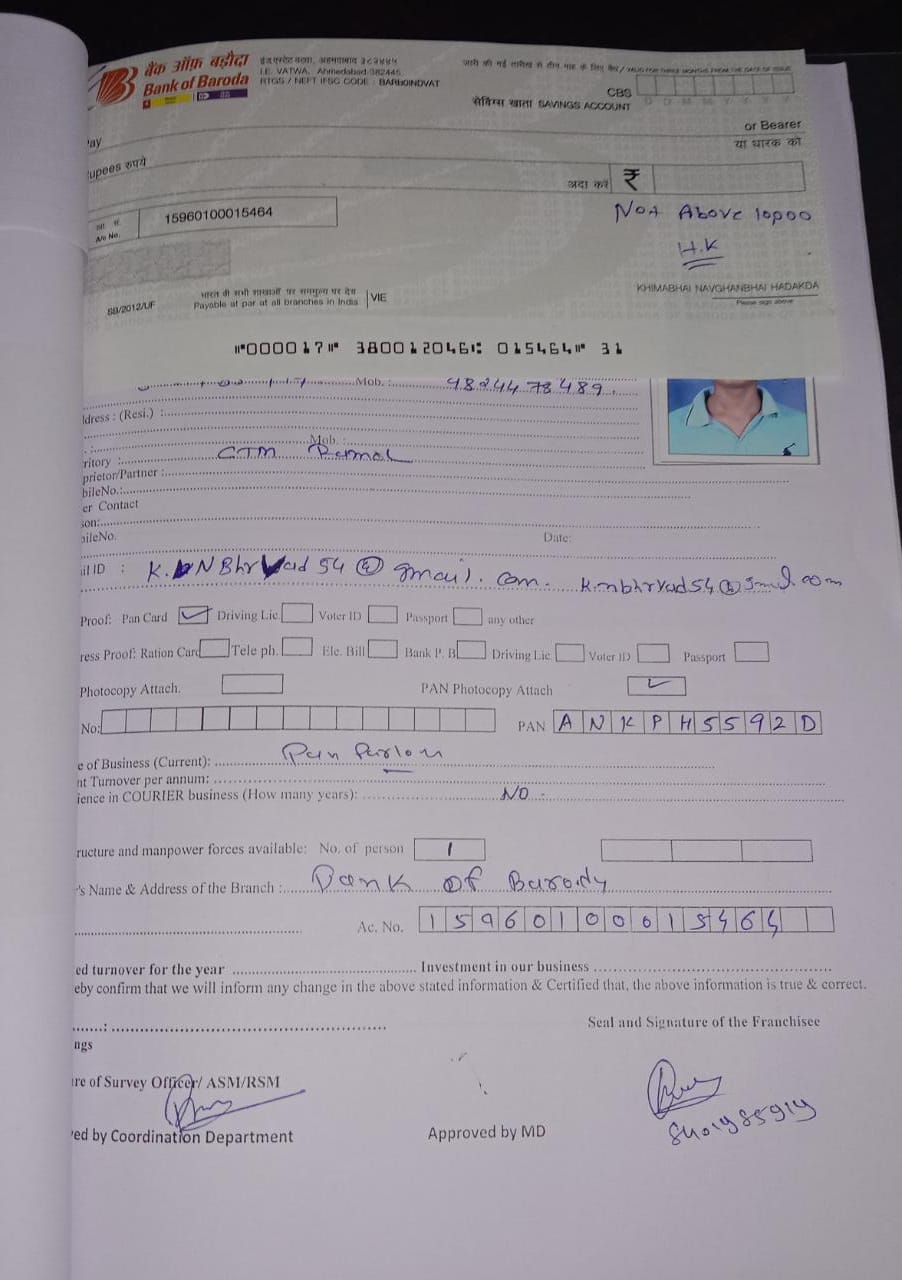 बैंक ऑफ़ बड़ौदा
Bank of Baroda
I.E. VATWA, Ahmedabad-382445
RTGS / NEFT IFSC CODE : BARB0INDVAT
जारी की गई तारीख से तीन माह के लिए वैध / VALID FOR THREE MONTHS FROM THE DATE OF ISSUE
CBS
D D M M Y Y Y Y
सेविंग्स खाता SAVINGS ACCOUNT
or Bearer
या धारक को
ay
upees रुपये
अदा करें ₹
A/c No. 15960100015464
Not Above 10000
H.K
SB/2012/UF
भारत की सभी शाखाओं पर सममूल्य पर देय
Payable at par at all branches in India VIE
KHIMABHAI NAVGHANBHAI HADAKDA
Please sign above
⑈000017⑈ 380012046⑆ 015464⑈ 31
Mob. : 9824478489
ldress : (Resi.) :
Mob. :
rritory : CTM
prietor/Partner :
bileNo.:
er Contact
son:
bileNo. Date:
il ID : K. NBhrvad 54@gmail.com. k.nbhrvad54@gmail.com
Proof: Pan Card ✓ Driving Lic. Voter ID Passport any other
ress Proof: Ration Card Tele ph. Ele. Bill Bank P. B Driving Lic. Voter ID Passport
Photocopy Attach. PAN Photocopy Attach ✓
No: PAN ANKPH5592D
e of Business (Current): Pan Parlour
nt Turnover per annum:
ience in COURIER business (How many years): NO
ructure and manpower forces available: No. of person 1
's Name & Address of the Branch : Bank Of Baroda
Ac. No. 15960100015464
ed turnover for the year Investment in our business
eby confirm that we will inform any change in the above stated information & Certified that, the above information is true & correct.
Seal and Signature of the Franchisee
ngs
re of Survey Officer/ ASM/RSM
ed by Coordination Department
Approved by MD
8401985919